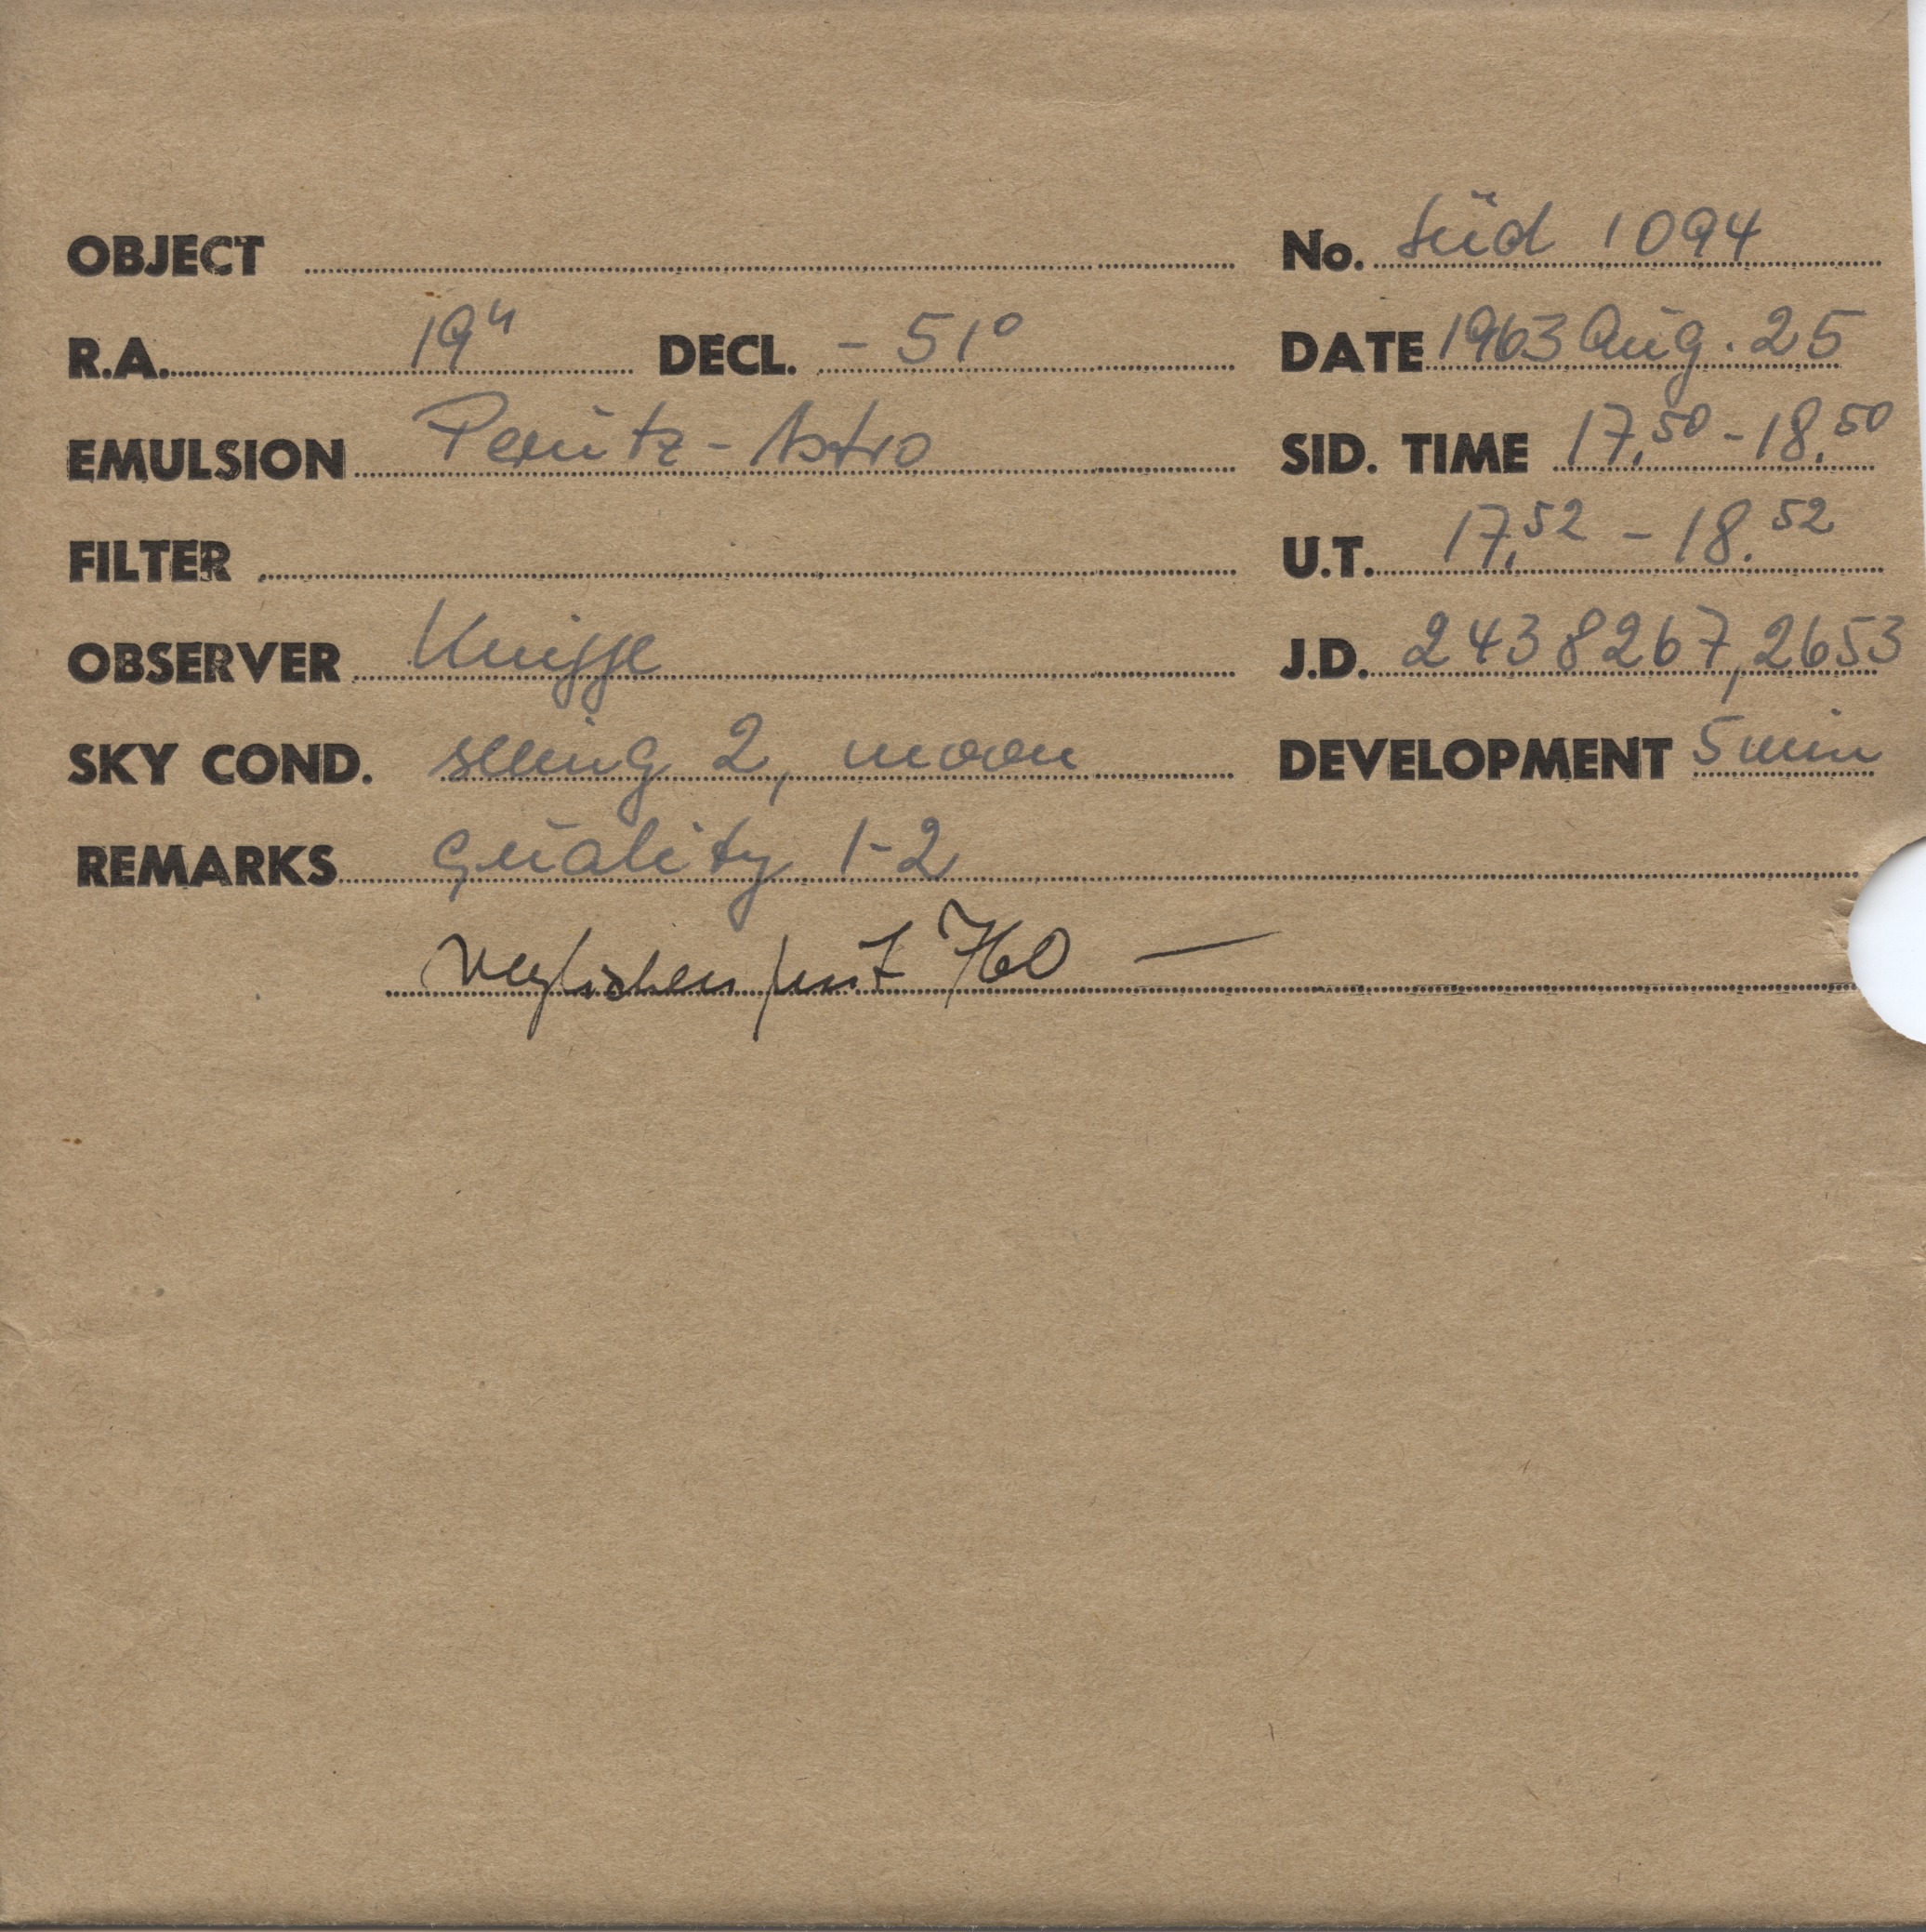 OBJECT No. Süd 1094
R.A. 19h DECL. - 51° DATE 1963 Aug. 25
EMULSION Perutz - Astro SID. TIME 17.50 - 18.50
FILTER U.T. 17.52 - 18.52
OBSERVER Knigge J.D. 2438267,2653
SKY COND. seeing 2, moon DEVELOPMENT 5 min
REMARKS quality 1-2
verglichen mit 760 —